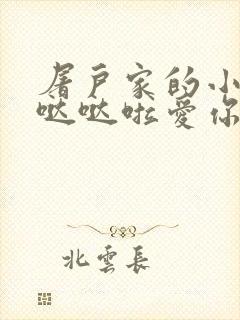 屠戶家的小
哒哒啦爱你
北雲長